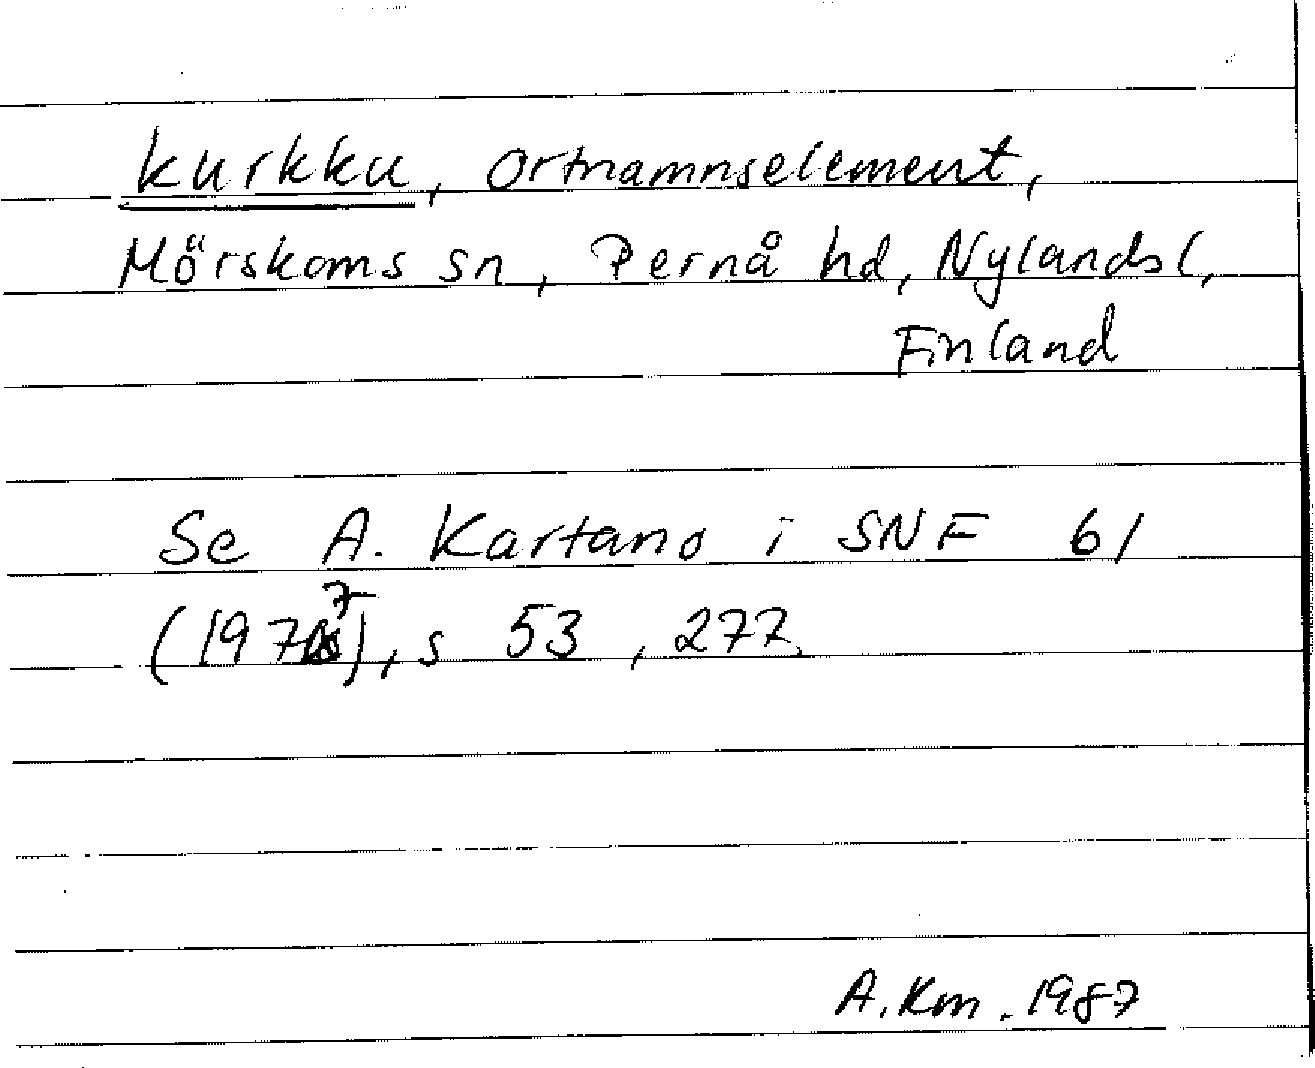 kurkku, ortnamnselement,
Mörskoms sn, Pernå hd, Nylands l,
Finland
Se A. Kartano i SNF 61
(1977), s 53, 277.
A. Km. 1987